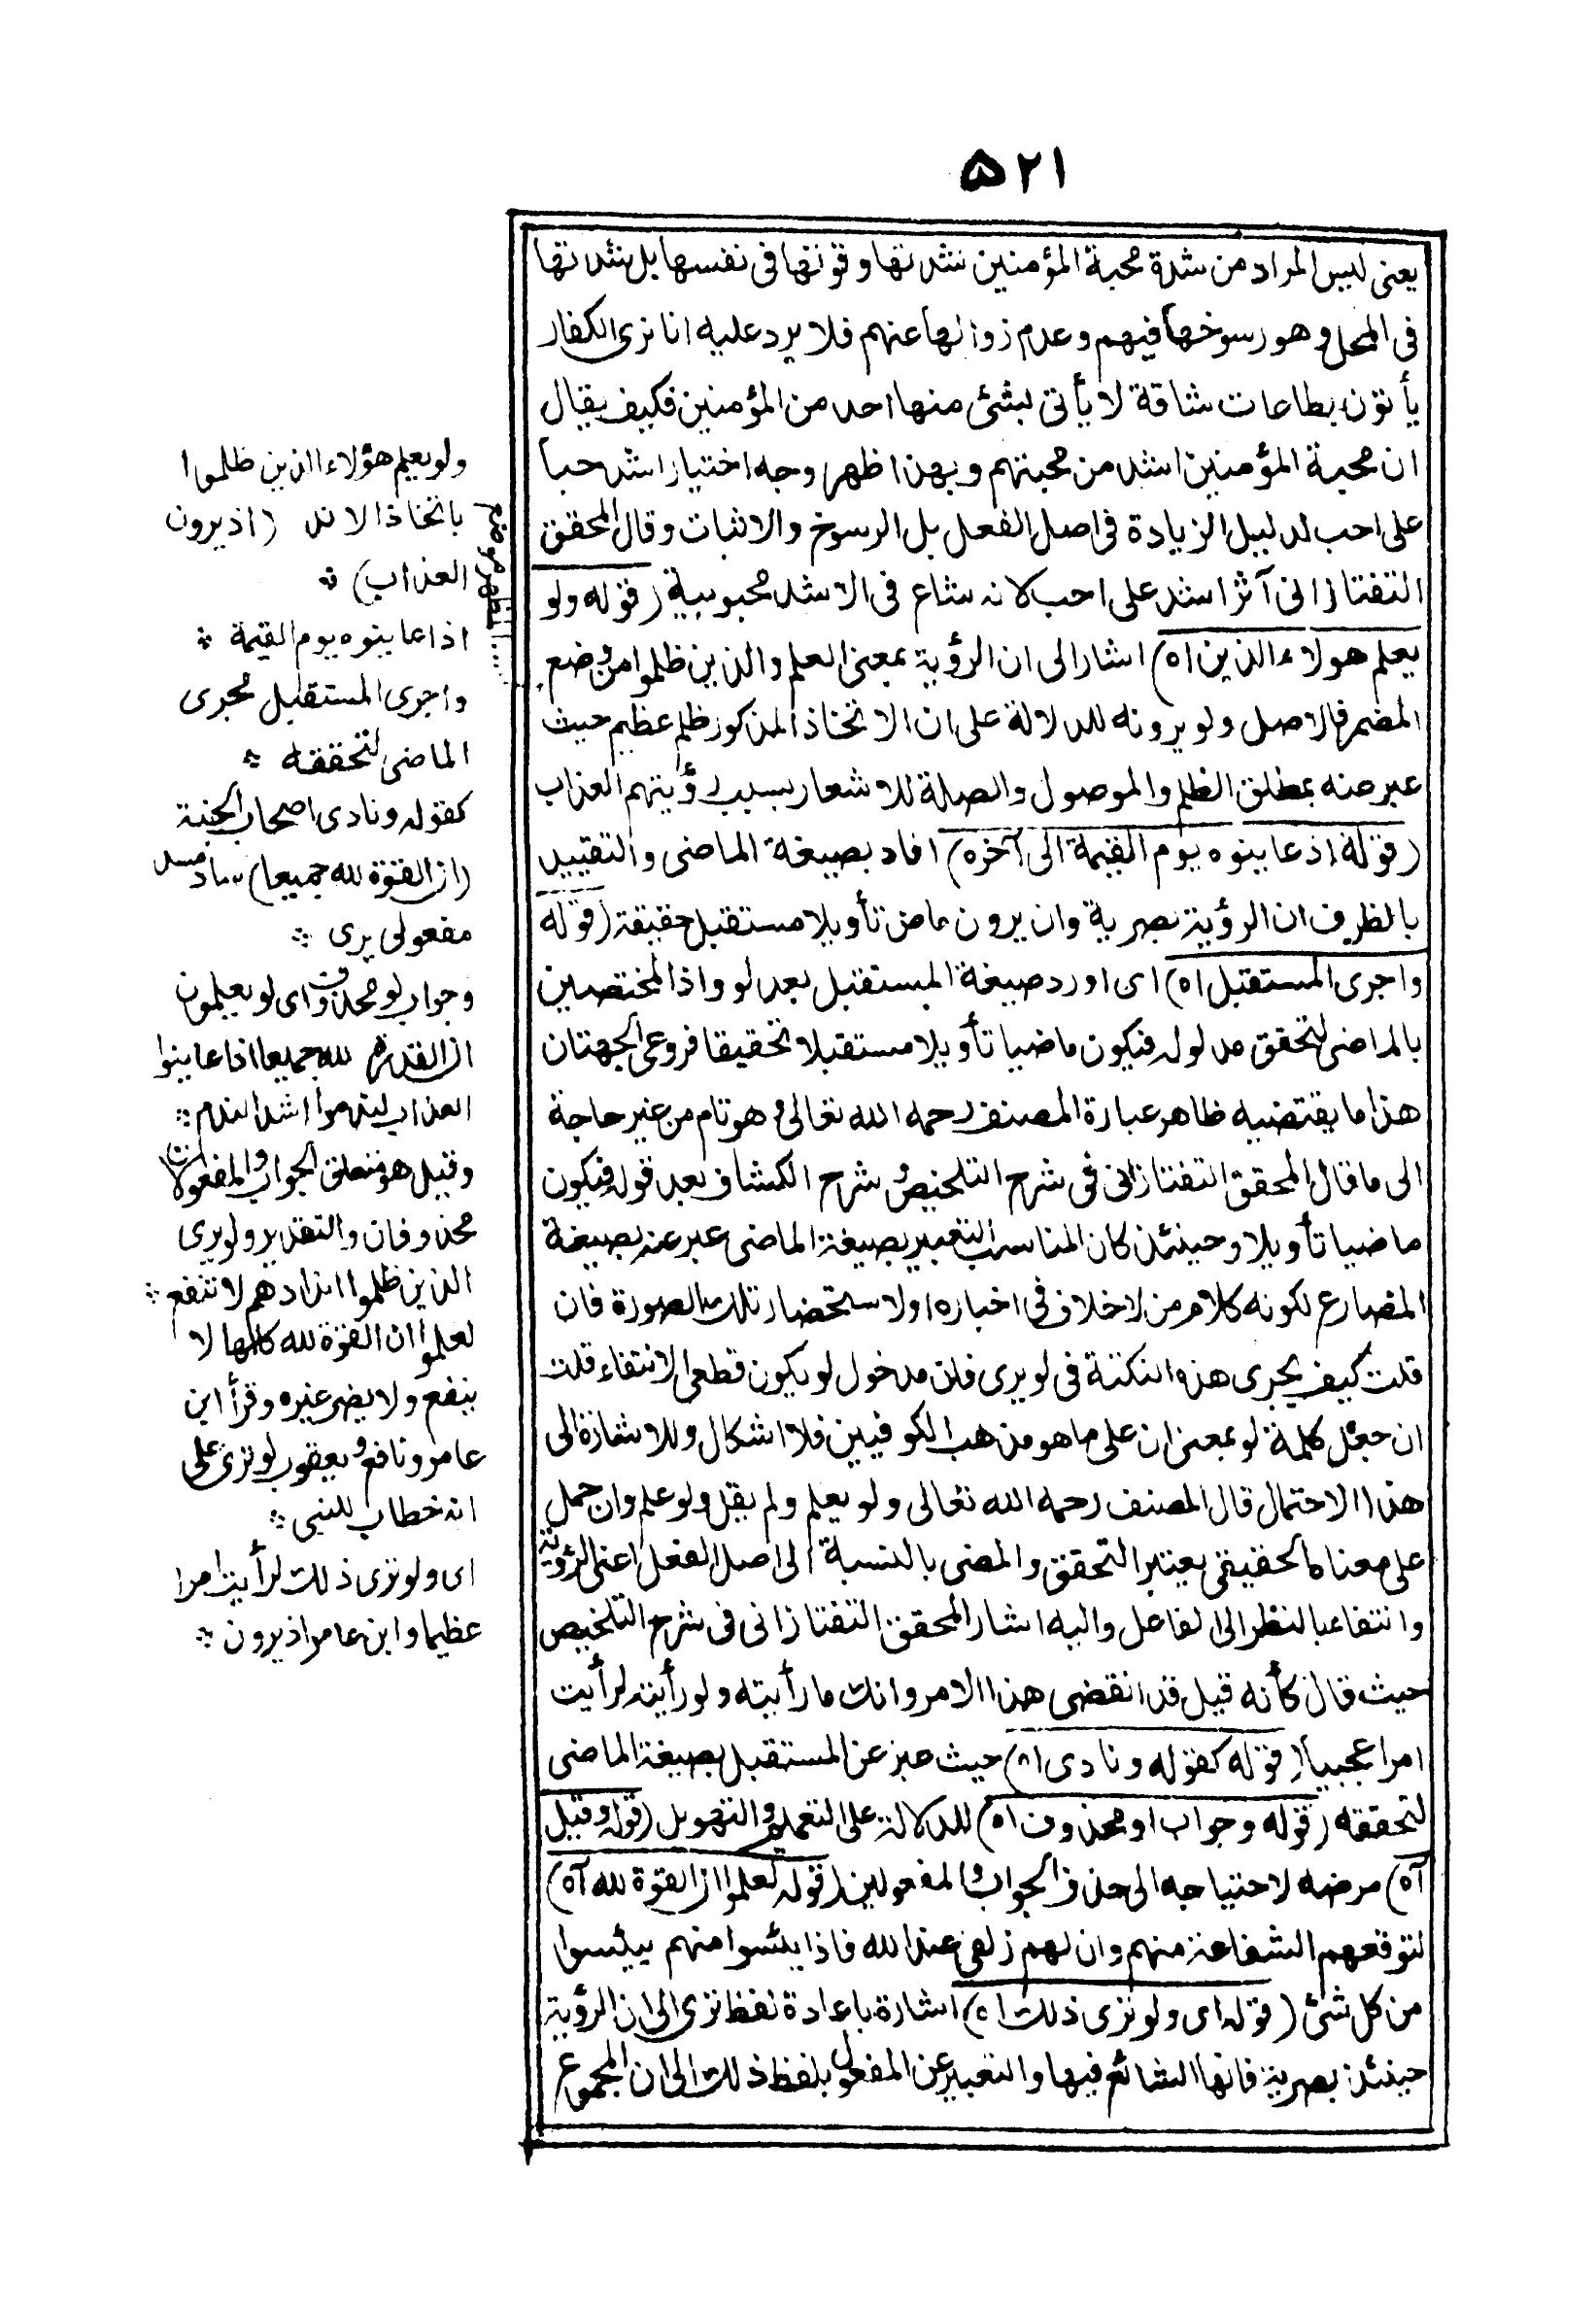 ٥٢١
يعنى ليس المراد من شدة محبة المؤمنين شدتها وقوتها فى نفسها بل شدتها
فى المحل وهو رسوخها فيهم وعدم زوالها عنهم فلا يرد عليه انا نرى الكفار
يأتون بطاعات شاقة لا يأتى بشئ منها احد من المؤمنين فكيف يقال
ان محبة المؤمنين اشد من محبتهم وبهذا ظهر وجه اختيار اشد حبا
على احب لد ليل الزيادة فى اصل الفعل بل الرسوخ والاثبات وقال المحقق
التفتازانى آثر اشد على احب لانه شاع فى الاشد محبوبية (قوله ولو
يعلم هولاء الذين اه) اشار الى ان الرؤية بمعنى العلم والذين ظلموا من وضع
المضمر فالاصل ولو يرونه للدلالة على ان الاتخاذ المذكور ظلم عظيم حيث
عبر عنه بمطلق الظلم والموصول والصلة للاشعار بسبب رؤيتهم العذاب
(قوله اذ عاينوه يوم القيمة الى آخره) افاد بصيغة الماضى والتقييد
بالظرف ان الرؤية بصرية وان يرون ماض تأويلا مستقبل حقيقة (قوله
واجرى المستقبل اه) اى اورد صيغة المستقبل بعد لو واذ المختصين
بالماضى لتحقق مدلوله فيكون ماضيا تأويلا مستقبلا تحقيقا فروعى الجهتان
هذا ما يقتضيه ظاهر عبارة المصنف رحمه الله تعالى وهو تام من غير حاجة
الى ما قال المحقق التفتازانى فى شرح التلخيص وشرح الكشاف بعد قوله فيكون
ماضيا تأويلا وحينئذ كان المناسب التعبير بصيغة الماضى عبر عنه بصيغة
المضارع لكونه كلام من لا خلاف فى اخباره او لاستحضار تلك الصورة فان
قلت كيف يجرى هذه النكتة فى لو يرى فان مدخول لو يكون قطعى الانتفاء قلت
ان جعل كلمة لو بمعنى ان على ما هو مذهب الكوفيين فلا اشكال وللاشارة الى
هذا الاحتمال قال المصنف رحمه الله تعالى ولو يعلم ولم يقل ولو علم وان حمل
على معناه الحقيقى يعتبر التحقق والمضى بالنسبة الى اصل الفعل اعنى الرؤية
وانتفاءها بالنظر الى الفاعل واليه اشار المحقق التفتازانى فى شرح التلخيص
حيث قال كأنه قيل قد انقضى هذا الامر وانك ما رأيته ولو رأيته لرأيت
امرا عجيبا (قوله كقوله ونادى اه) حيث عبر عن المستقبل بصيغة الماضى
لتحققه (قوله وجواب لو محذوف اه) للدلالة على التعميم والتهويل (قوله وقيل
آه) مرضه لاحتياجه الى حذف الجواب والمفعولين (قوله لعلموا ان القوة لله آه)
لتوقعهم الشفاعة منهم وان لهم زلفى عند الله فاذا يئسوا منهم ييئسوا
من كل شئ (قوله اى ولو ترى ذلك اه) اشارة باعادة لفظ ترى الى ان الرؤية
حينئذ بصرية فانها الشائع فيها والتعبير عن المفعول بلفظ ذلك الى ان المجموع
ولو يعلم هؤلاء الذين ظلموا
باتخاذ الاند (اذ يرون
العذاب)
اذا عاينوه يوم القيمة
واجرى المستقبل مجرى
الماضى لتحققه
كقوله ونادى اصحاب الجنة
(ان القوة لله جميعا) ساد مسد
مفعولى يرى
وجواب لو محذوف اى لو يعلمون
ان القدرة لله جميعا اذا عاينوا
العذاب لندموا اشد الندم
وقيل هو متعلق الجواب والمفعولان
محذوفان والتقدير ولو يرى
الذين ظلموا اندادهم لا تنفع
لعلموا ان القوة لله كلها لا
ينفع ولا يضر غيره وقرأ ابن
عامر ونافع ويعقوب لو ترى على
انه خطاب للنبى
اى ولو ترى ذلك لرأيت امرا
عظيما وابن عامر اذ يرون